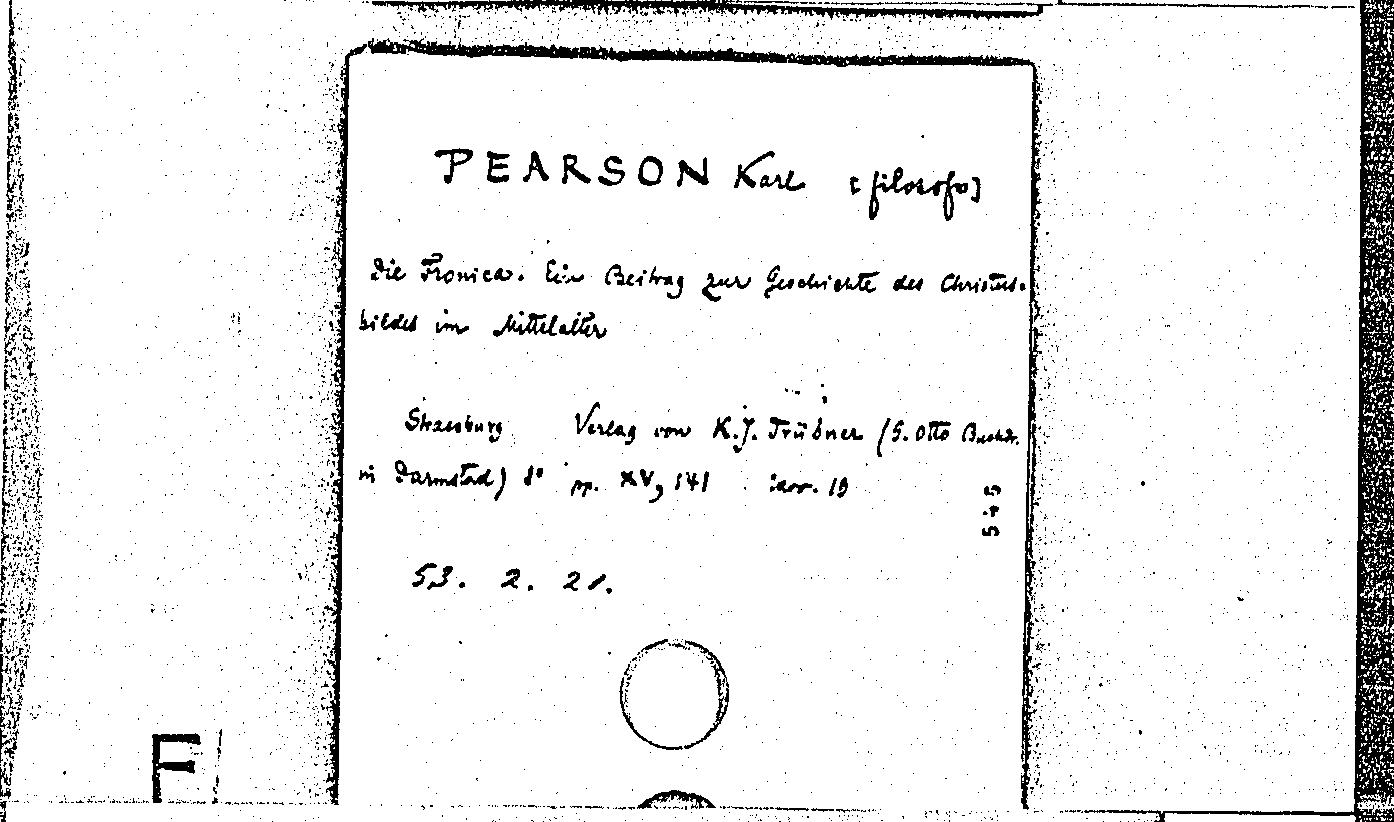 PEARSON Karl [filosofo]
Die Fronica. Ein Beitrag zur Geschichte des Christus-
bildes im Mittelalter
Strassburg Verlag von K. J. Trübner (G. Otto Buchdr.
in Darmstad) 8° pp. XV, 141
545
53. 2. 21.
F